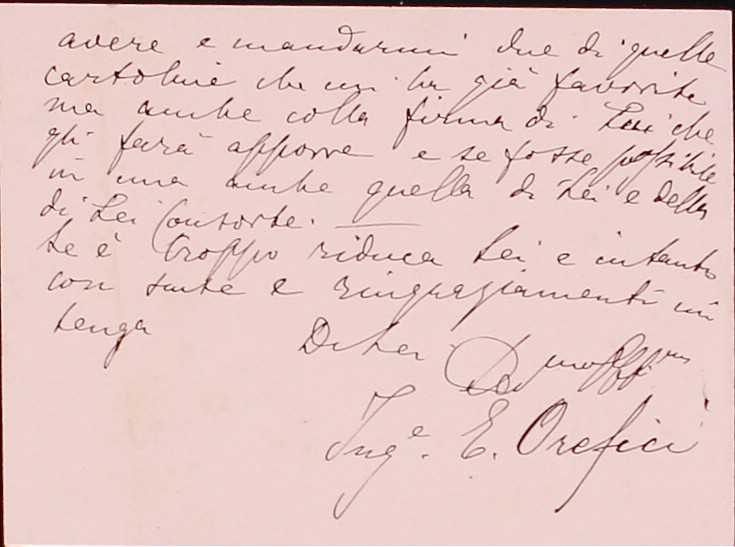 avere e mandarmi due di quelle
cartoline che mi ha già favorite
ma anche colla firma di Lui che
gli farà apporre e se fosse possibile
in una anche quella di Lei e della
di Lei Consorte.
Se è troppo riduca Lei e intanto
con scuse e ringraziamenti mi
tenga
Di Lei
Ing.e E. Orefici